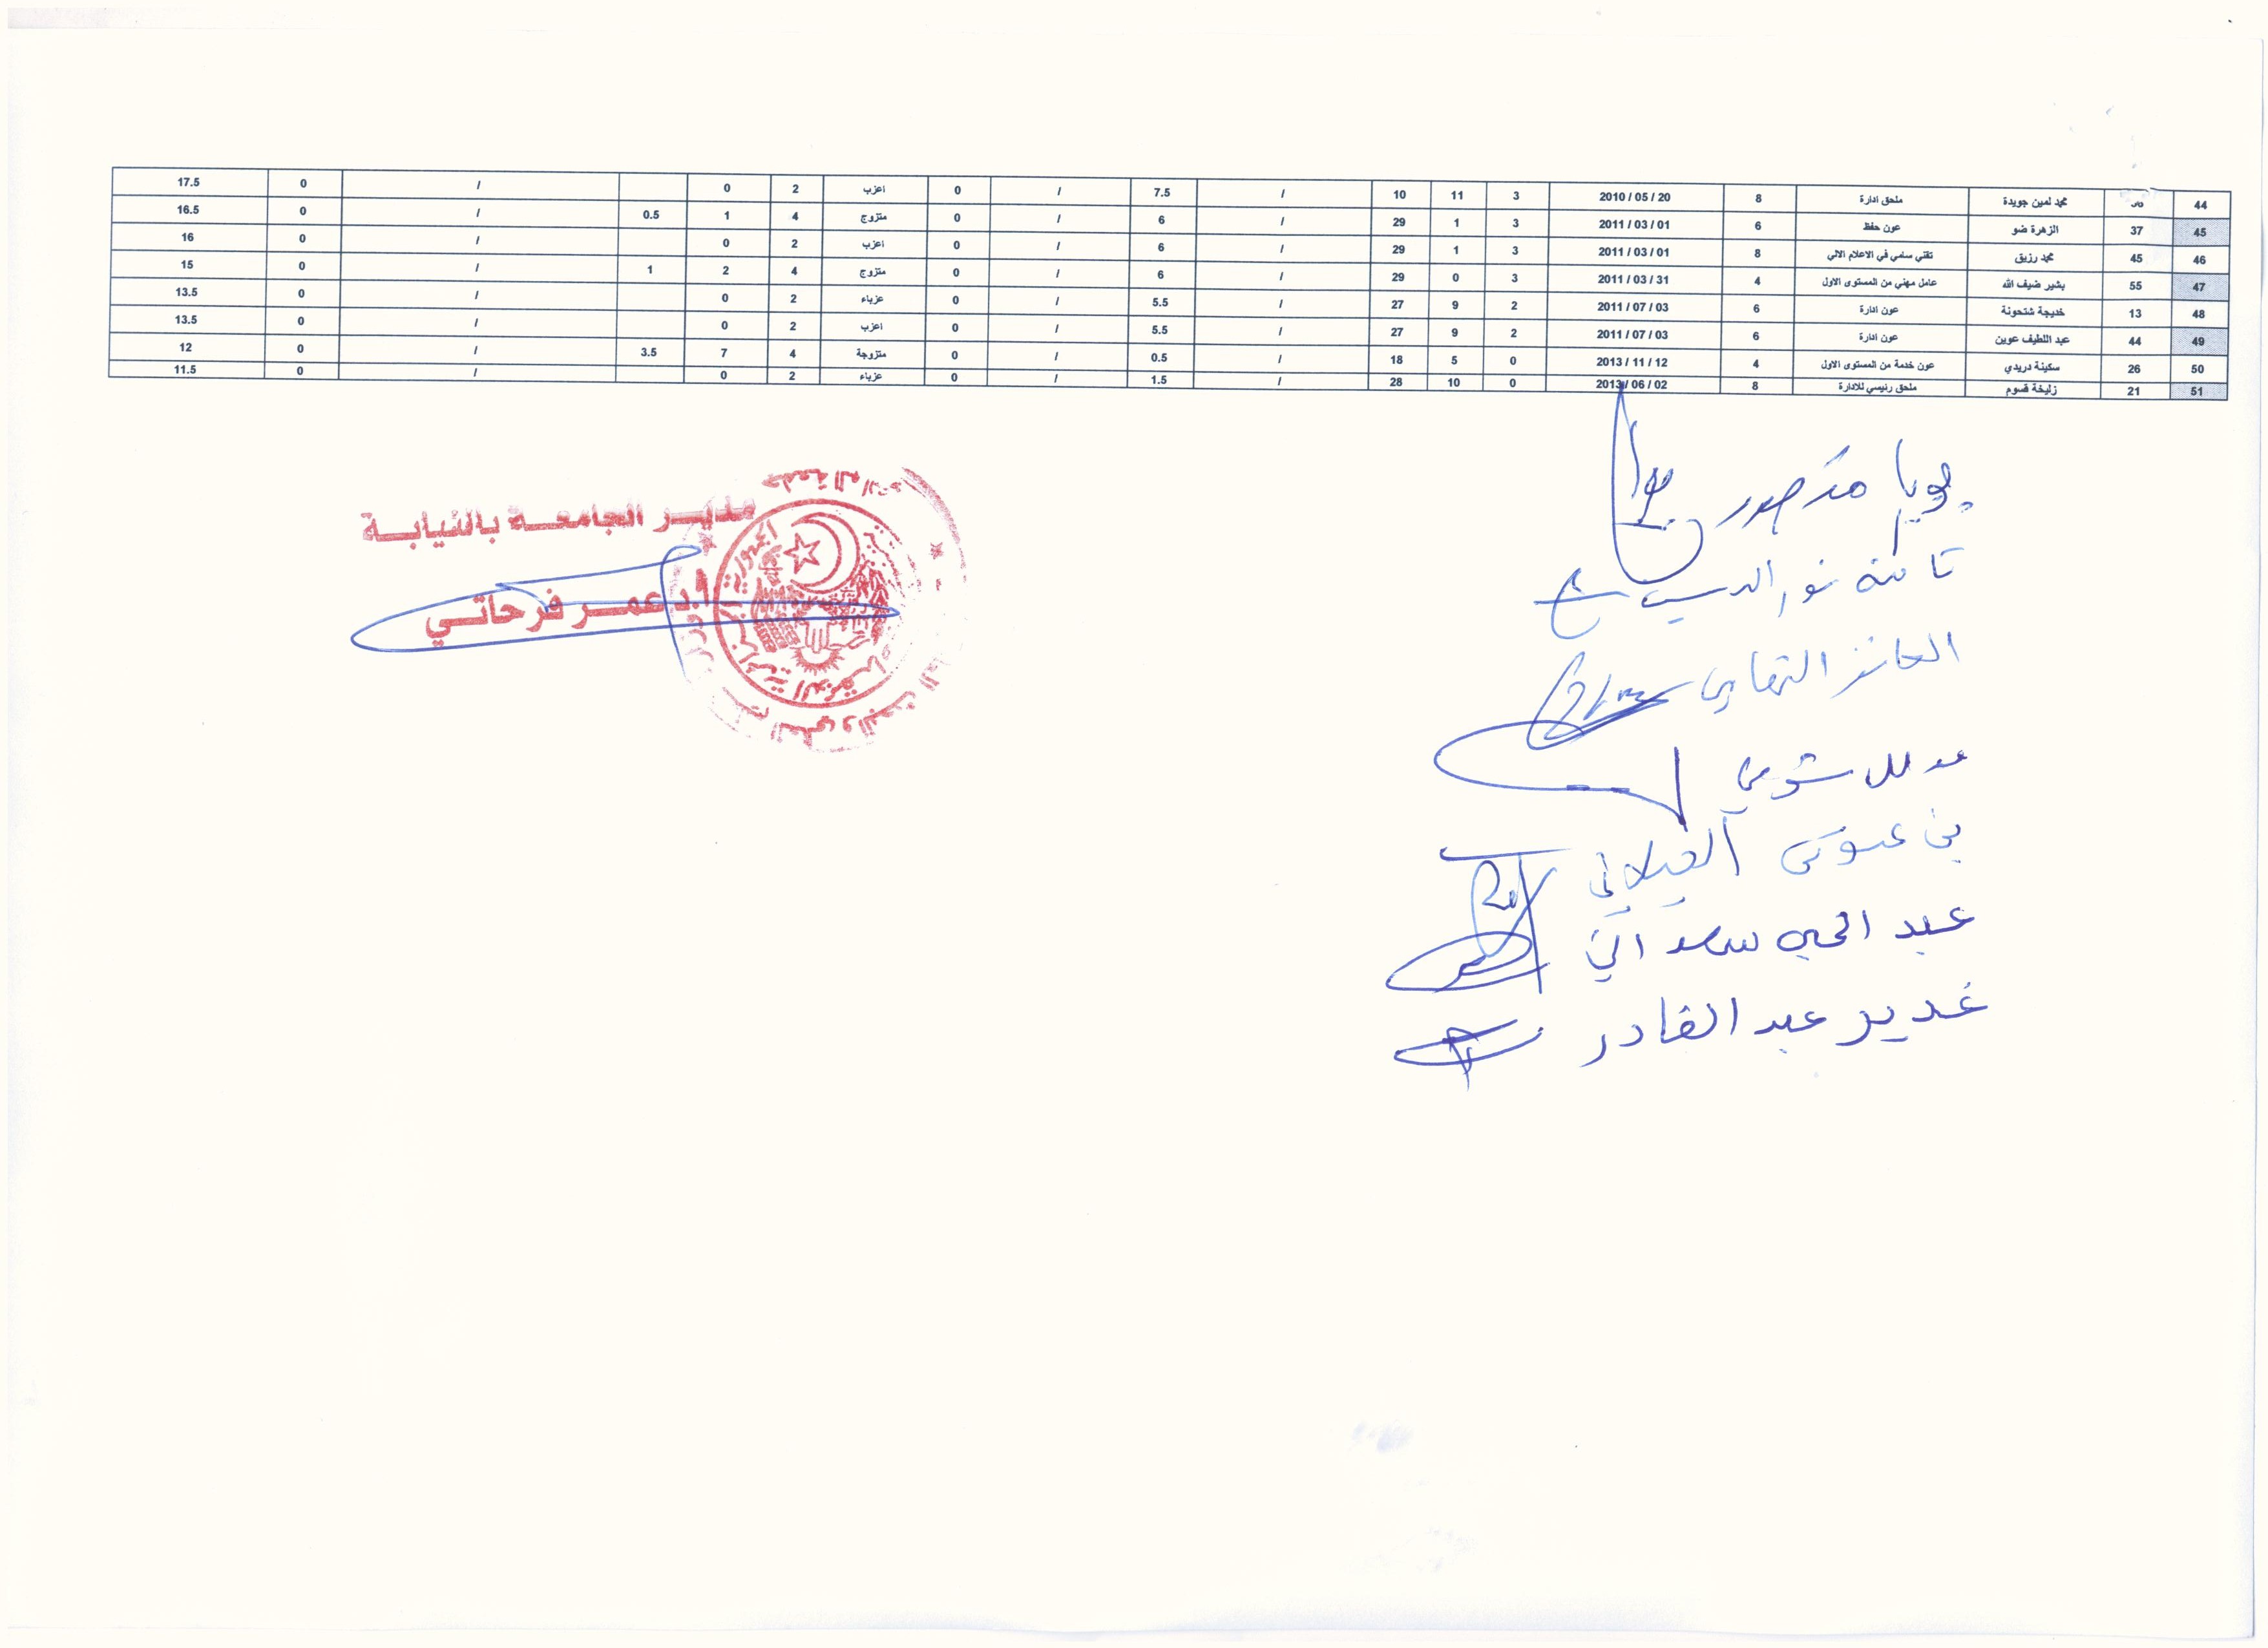 44 محمد لمين جويدة ملحق ادارة 8 2010 / 05 / 20 3 11 10 / 7.5 / 0 اعزب 2 0 / 0 17.5
45 37 الزهرة ضو عون حفظ 6 2011 / 03 / 01 3 1 29 / 6 / 0 متزوج 4 1 0.5 / 0 16.5
46 45 محمد رزيق تقني سامي في الاعلام الالي 8 2011 / 03 / 01 3 1 29 / 6 / 0 اعزب 2 0 / 0 16
47 55 بشير ضيف الله عامل مهني من المستوى الاول 4 2011 / 03 / 31 3 0 29 / 6 / 0 متزوج 4 2 1 / 0 15
48 13 خديجة شتحونة عون ادارة 6 2011 / 07 / 03 2 9 27 / 5.5 / 0 عزباء 2 0 / 0 13.5
49 44 عبد اللطيف عوين عون ادارة 6 2011 / 07 / 03 2 9 27 / 5.5 / 0 اعزب 2 0 / 0 13.5
50 26 سكينة دريدي عون خدمة من المستوى الاول 4 2013 / 11 / 12 0 5 18 / 0.5 / 0 متزوجة 4 7 3.5 / 0 12
51 21 زليخة قسوم ملحق رئيسي للادارة 8 2013 / 06 / 02 0 10 28 / 1.5 / 0 عزباء 2 0 / 0 11.5
مدير الجامعة بالنيابة
أ.د عمر فرحاتي
منصور
نور الدين
شوبي
بن عيسى الجيلاني
عبد الحي سعداني
غدير عبد القادر